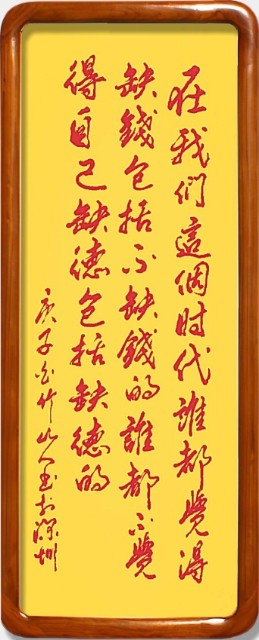 在我們這個时代誰都覺得
缺錢包括不缺錢的誰都不覺
得自己缺德包括缺德的
庚子